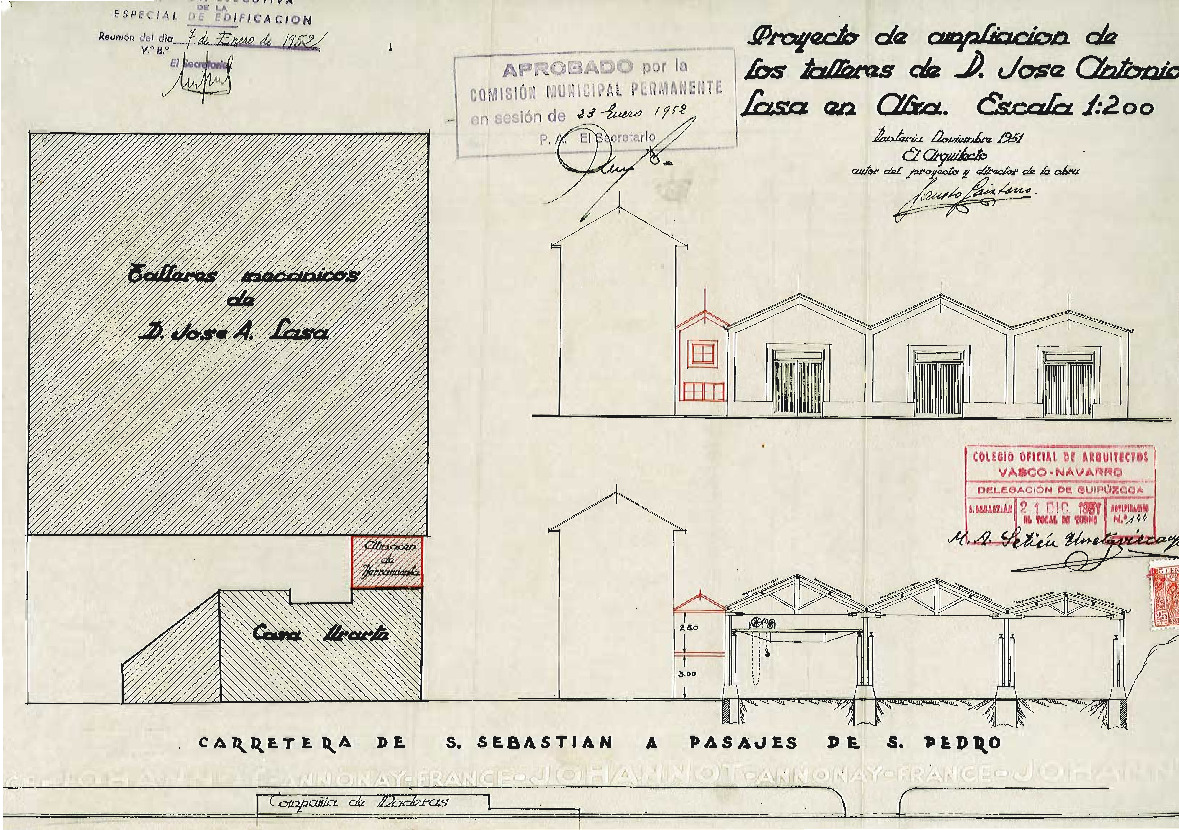 DE LA
ESPECIAL DE EDIFICACION
Reunión del día 7 de Enero de 1952
V.º B.º
El Secretario
1
APROBADO por la
COMISIÓN MUNICIPAL PERMANENTE
en sesión de 23 Enero 1952
P. A. El Secretario
Proyecto de ampliacion de
los talleres de D. Jose Antonio
Lasa en Alza. Escala 1:200
Noviembre 1951
El Arquitecto
autor del proyecto y director de la obra
Talleres mecanicos
de
D. Jose A. Lasa
Almacen
de
Herramienta
Casa Uranta
COLEGIO OFICIAL DE ARQUITECTOS
VASCO-NAVARRO
DELEGACIÓN DE GUIPÚZCOA
S. SEBASTIÁN
21 DIC. 1951
EL VOCAL DE TURNO
2.50
3.00
CARRETERA DE S. SEBASTIAN A PASAJES DE S. PEDRO
JOHANNOT-ANNONAY-FRANCE-JOHANNOT-ANNONAY-FRANCE-JOHANN
Compañia de Maderas